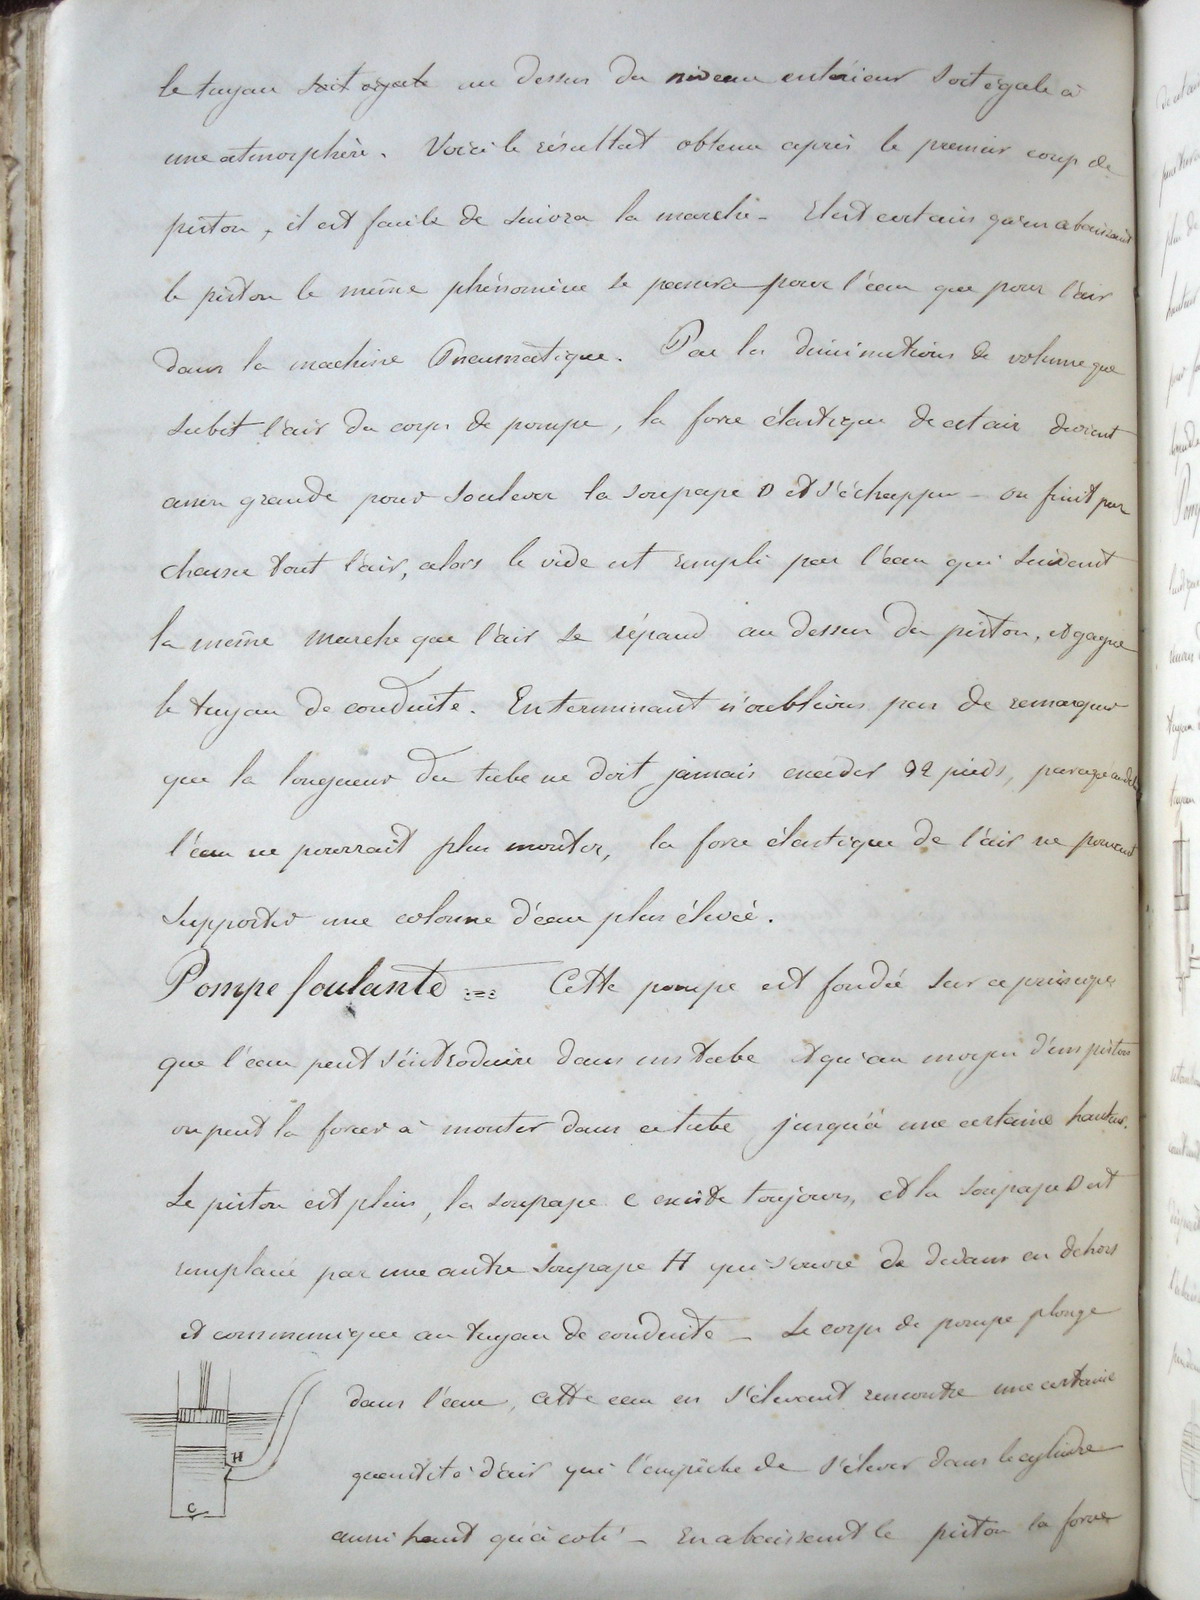 le tuyau soit égale au dessus du niveau extérieur soit égale à
une atmosphère. Voici le résultat obtenu après le premier coup de
piston, il est facile de suivre la marche - Il est certain qu'en abaissant
le piston le même phénomène se passera pour l'eau que pour l'air
dans la machine Pneumatique. Par les diminutions de volume que
subit l'air du corps de pompe, la force élastique de cet air devient
assez grande pour soulever la soupape D et s'échapper - on finit par
chasser tout l'air, alors le vide est rempli par l'eau qui suivant
la même marche que l'air se répand au dessus du piston, et gagne
le tuyau de conduite. En terminant n'oublions pas de remarquer
que la longueur du tube ne doit jamais excéder 32 pieds, parceque
l'eau ne pourrait plus monter, la force élastique de l'air ne pouvant
supporter une colonne d'eau plus élevée.
Pompe foulante == Cette pompe est fondée sur ce principe
que l'eau peut s'introduire dans un tube et qu'au moyen d'un piston
on peut la forcer à monter dans ce tube jusqu'à une certaine hauteur.
Le piston est plein, la soupape C existe toujours, et la soupape D est
remplacée par une autre soupape H qui s'ouvre de dedans en dehors
et communique au tuyau de conduite - Le corps de pompe plonge
dans l'eau, cette eau en s'élevant rencontre une certaine
quantité d'air qui l'empêche de s'élever dans le cylindre
aussi haut qu'à coté - En abaissant le piston la force
H
C